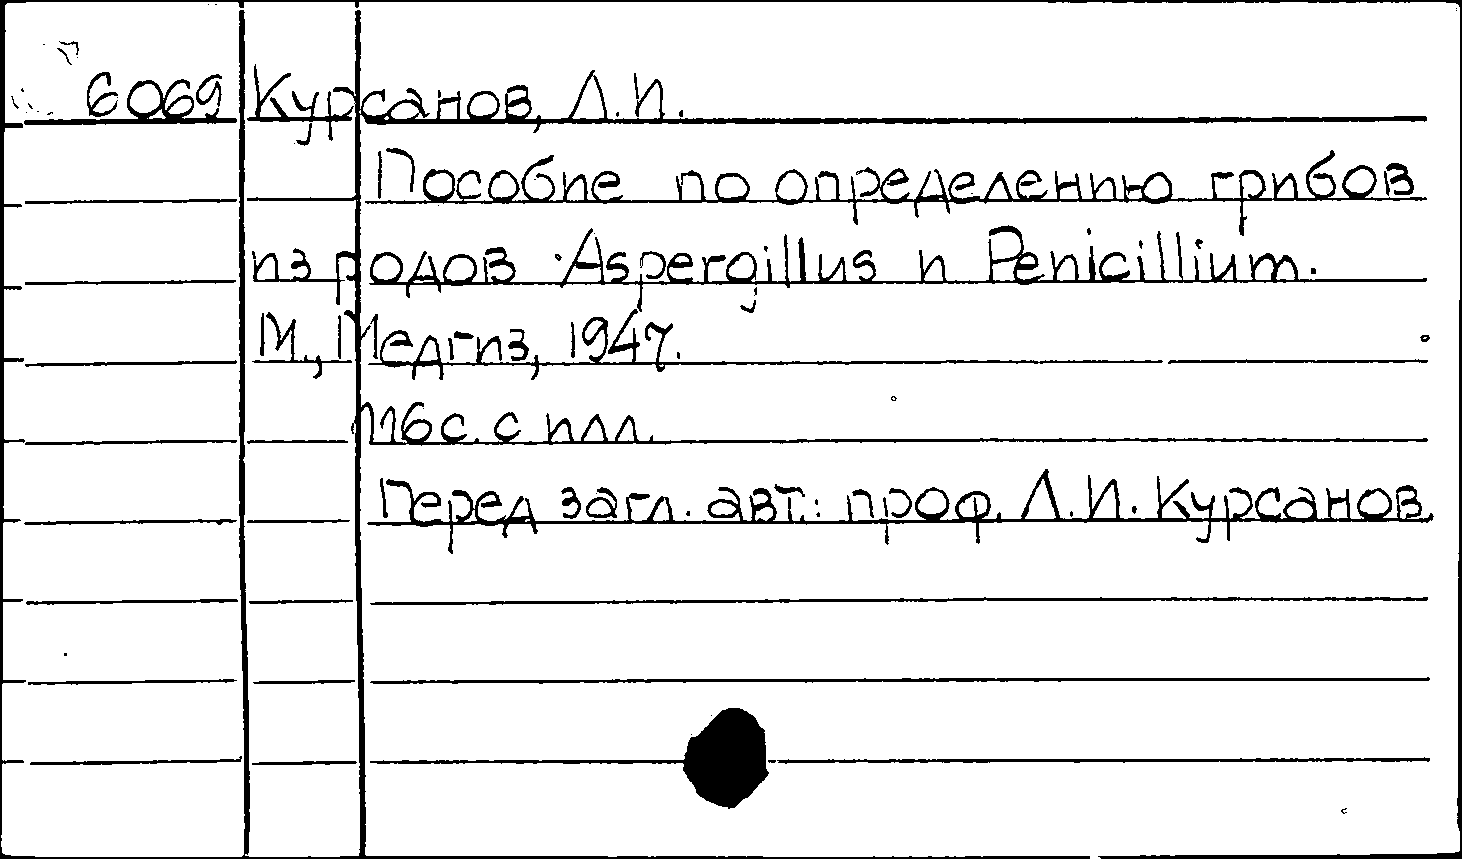 6069 Курсанов, Л.И.
Пособие по определению грибов
из родов Aspergillus и Penicillium.
М., Медгиз, 1947.
116 с. с илл.
Перед загл. авт.: проф. Л.И. Курсанов.